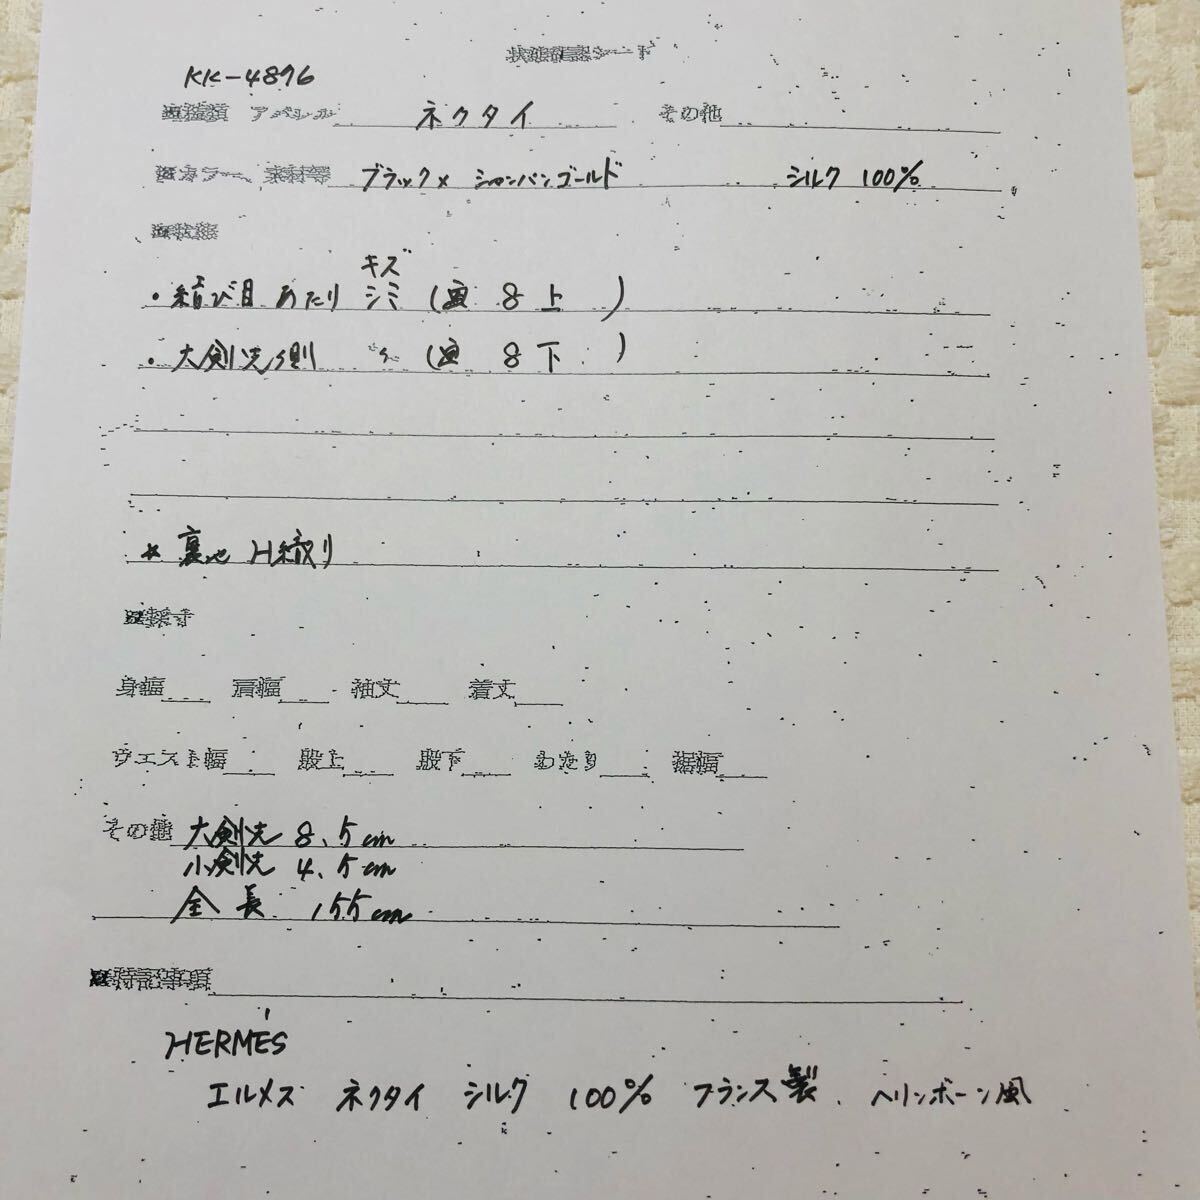 状態確認シート
KK-4876
■種類 アパレル ネクタイ その他
■カラー、素材等 ブラック× シャンパンゴールド シルク 100%
■状態
キズ
・結び目あたり シミ (画 8 上 )
・大剣先側 〃 (画 8 下 )
* 裏地 H織り
■採寸
身幅 肩幅 袖丈 着丈
ウエスト幅 股上 股下 わたり 裾幅
その他 大剣先 8.5cm
小剣先 4.5cm
全長 155cm
■特記事項
HERMÈS
エルメス ネクタイ シルク 100% フランス製、ヘリンボーン風